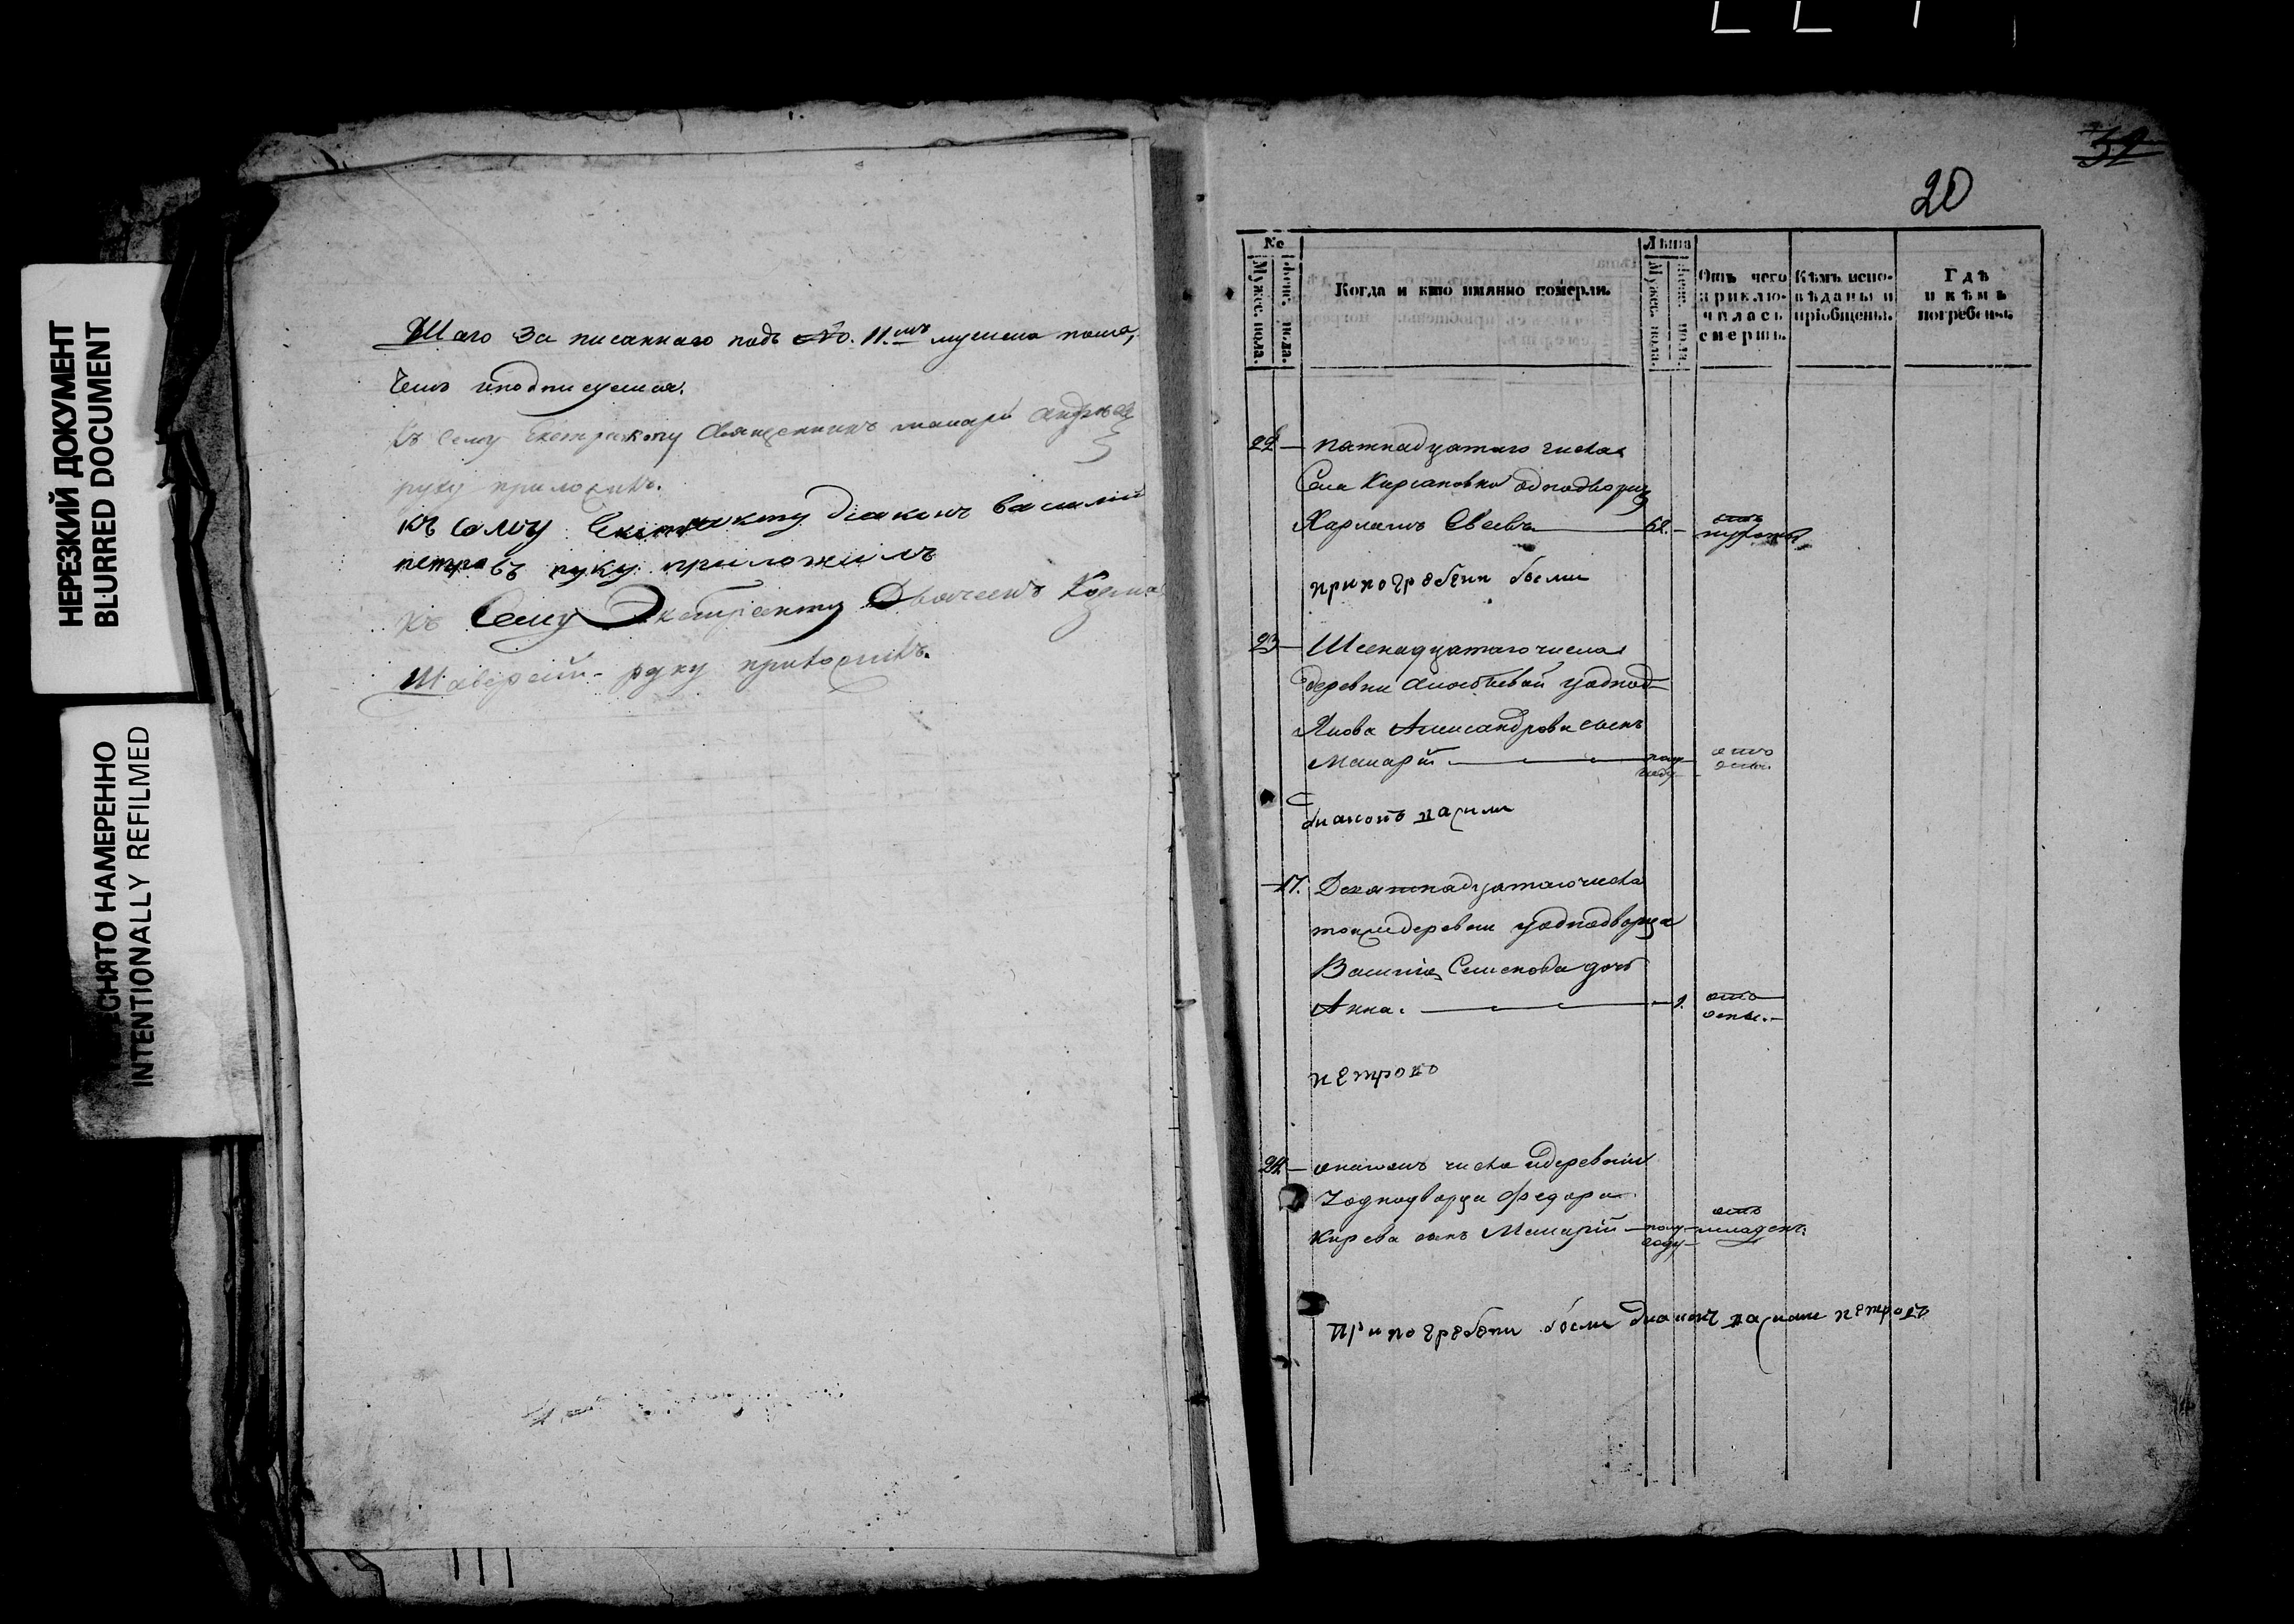 НЕРЕЗКИЙ ДОКУМЕНТ
BLURRED DOCUMENT
СНЯТО НАМЕРЕННО
INTENTIONALLY REFILMED
Шаго За писаннаго подъ №. 11.мъ мужеска пола,
чемъ и подписуемся.
къ сему Екстракту Священникъ Макарій Андреев
руку приложилъ.
къ сему Екстракту диаконъ василий
петровъ руку приложилъ
къ Сему Экстракту Дьячекъ Козма
руку приложилъ.
32
20
№
Мужес. пола.
Женс. пола.
Когда и кто имянно померли.
Лѣта
Мужес. пола.
Женс. пола.
Отъ чего приключилась смерть.
Кѣмъ исповѣданы и пріобщены.
Гдѣ и кѣмъ погребены.
22 – пятнадцатаго числа
Села Кирсановки однодворец
62.
при погребени были
23 – Шеснадцатаго числа
деревни у однод
Якова Александрова сынъ
Макарій полгоду отъ оспы
диаконъ васили
17. Девятнадцатаго числа
тойже деревни у однодворца
Василія Семенова дочь
Анна. 1. отъ оспы.
петровъ
24 – числа деревни
У однодворца Федора
Кирева сынъ Макарій полгоду отъ младенч.
При погребени были диаконъ василии петровъ